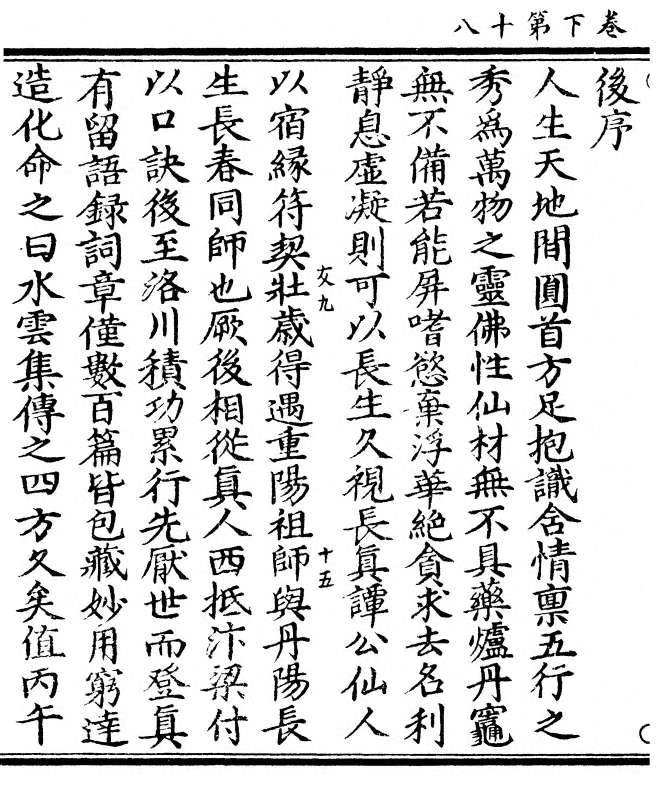 卷下第十八
後序
人生天地間圓首方足抱識含情稟五行之
秀爲萬物之靈佛性仙材無不具藥爐丹竈
無不備若能屏嗜慾棄浮華絶貪求去名利
靜息虛凝則可以長生久視長眞譚公仙人
攵九
十五
以宿緣符契壯歲得遇重陽祖師與丹陽長
生長春同師也厥後相從眞人西抵汴梁付
以口訣後至洛川積功累行先厭世而登眞
有留語録詞章僅數百篇皆包藏妙用窮達
造化命之曰水雲集傳之四方久矣值丙午